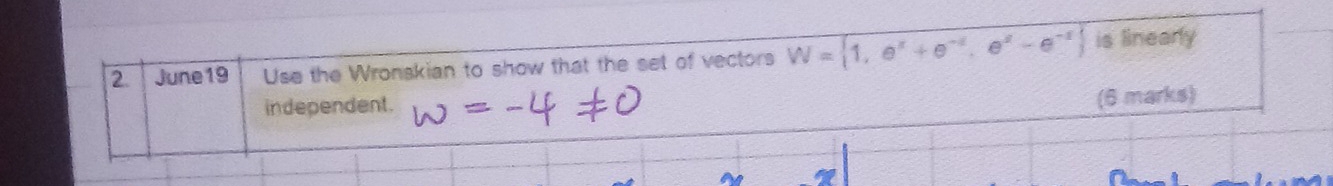 2. June19 Use the Wronskian to show that the set of vectors W = {1, eˣ + e⁻ˣ, eˣ - e⁻ˣ} is linearly
independent. W = -4 ≠ 0 (6 marks)